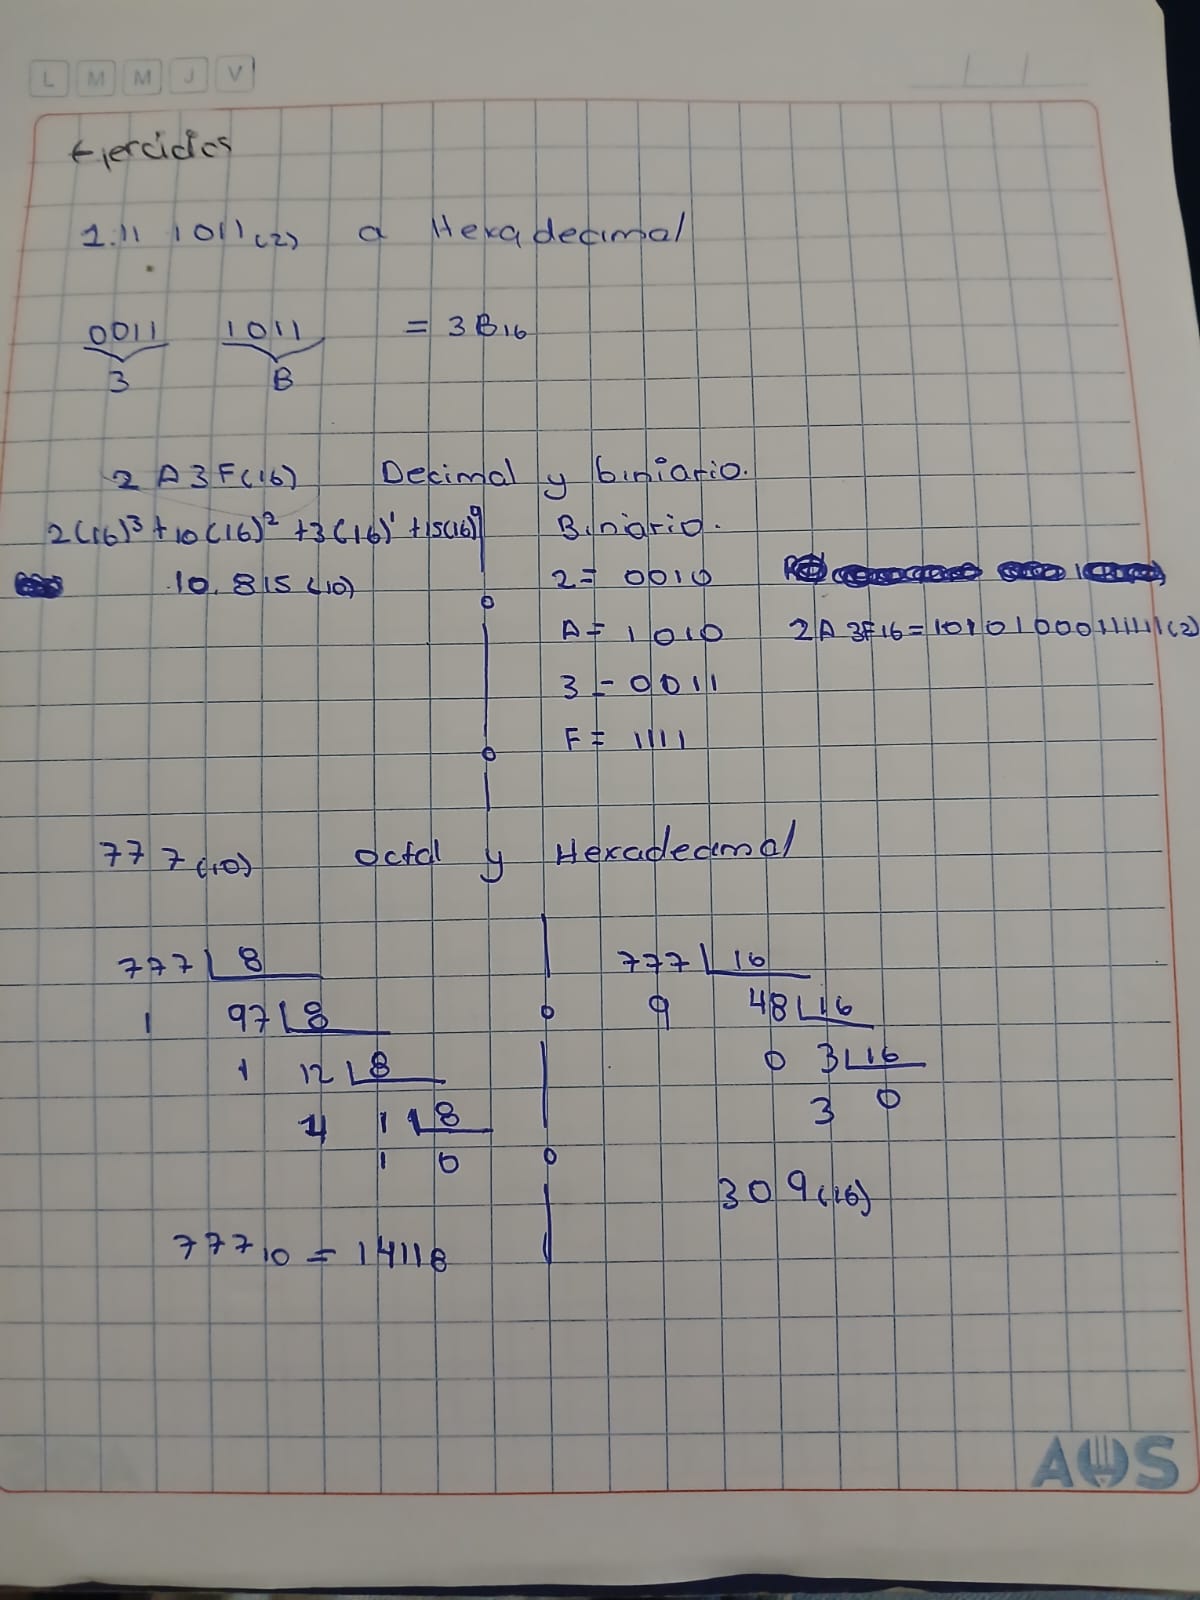 L M M J V
Ejercicios
1. 11 1011(2) a Hexadecimal
0011 1011 = 3B16
3 B
2 A3F(16) Decimal y biniario.
2(16)³+10(16)²+3(16)¹+15(16)⁰
10.815(10)
Biniario.
2= 0010
A= 1010
3-0011
F= 1111
2A3F16=10101000111111(2)
777(10) octal y Hexadecimal
777 8
1 97 8
1 12 8
4 1 8
1 0
777 10 = 14118
777 16
9 48 16
0 3 16
3 0
309(16)
AUS